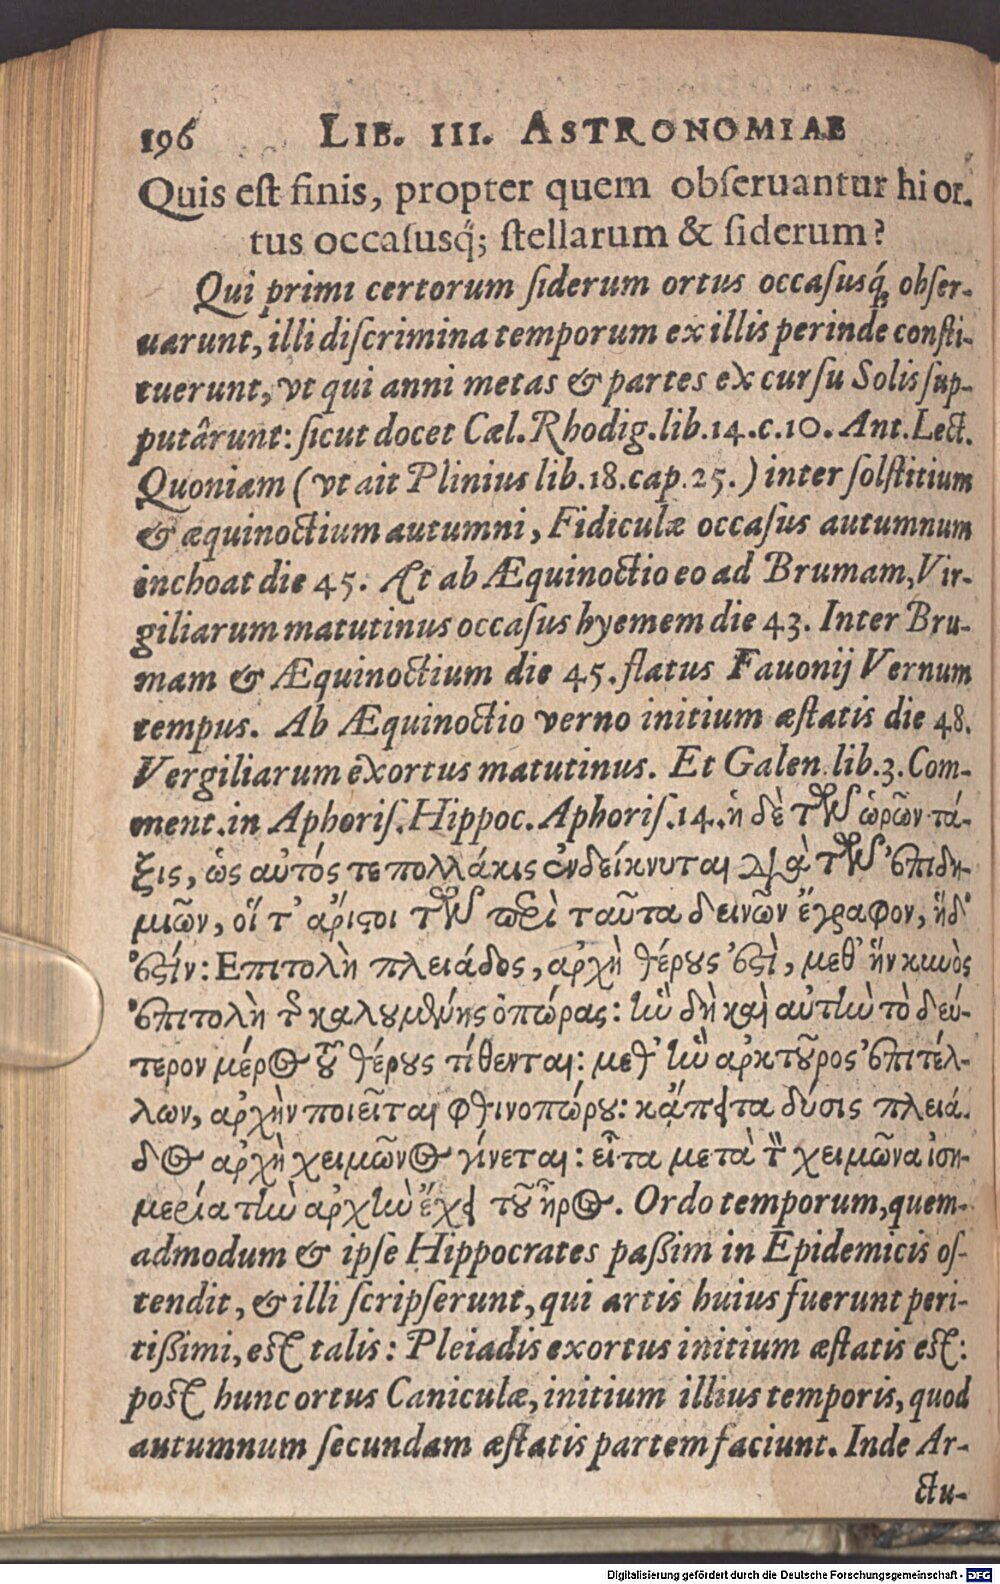 196 LIB. III. ASTRONOMIAE
Quis est finis, propter quem obseruantur hi or-
tus occasusq́; stellarum & siderum?
Qui primi certorum siderum ortus occasusq́, obser-
uarunt, illi discrimina temporum ex illis perinde consti-
tuerunt, vt qui anni metas & partes ex cursu Solis sup-
putârunt: sicut docet Cæl. Rhodig. lib. 14. c. 10. Ant. Lect.
Quoniam (vt ait Plinius lib. 18. cap. 25.) inter solstitium
& æquinoctium autumni, Fidiculæ occasus autumnum
inchoat die 45. At ab Æquinoctio eo ad Brumam, Vir-
giliarum matutinus occasus hyemem die 43. Inter Bru-
mam & Æquinoctium die 45. flatus Fauonij Vernum
tempus. Ab Æquinoctio verno initium æstatis die 48.
Vergiliarum exortus matutinus. Et Galen. lib. 3. Com-
ment. in Aphoris. Hippoc. Aphoris. 14. ἡ δὲ τῶν ὡρῶν τά-
ξις, ὡς αὐτός τε πολλάκις ἐνδείκνυται διὰ τῶν ἐπιδη-
μιῶν, οἵ τ' ἄριστοι τῶν περὶ ταῦτα δεινῶν ἔγραφον, ἥδ'
ἐστίν: Επιτολὴ πλειάδος, ἀρχὴ θέρους ἐστὶ, μεθ' ἣν κυνὸς
ἐπιτολὴ τῆς καλουμένης ὀπώρας: ἣν δὴ καὶ αὐτὴν τὸ δεύ-
τερον μέρος τοῦ θέρους τίθενται: μεθ' ἣν ἀρκτοῦρος ἐπιτέλ-
λων, ἀρχὴν ποιεῖται φθινοπώρου: κἄπειτα δύσις πλειά-
δος ἀρχὴ χειμῶνος γίνεται: εἶτα μετὰ τὸν χειμῶνα ἰση-
μερία τὴν ἀρχὴν ἔχει τοῦ ἦρος. Ordo temporum, quem-
admodum & ipse Hippocrates passim in Epidemicis os-
tendit, & illi scripserunt, qui artis huius fuerunt peri-
tissimi, est talis: Pleiadis exortus initium æstatis est:
post hunc ortus Caniculæ, initium illius temporis, quod
autumnum secundam æstatis partem faciunt. Inde Ar-
ctu-
Digitalisierung gefördert durch die Deutsche Forschungsgemeinschaft - DFG